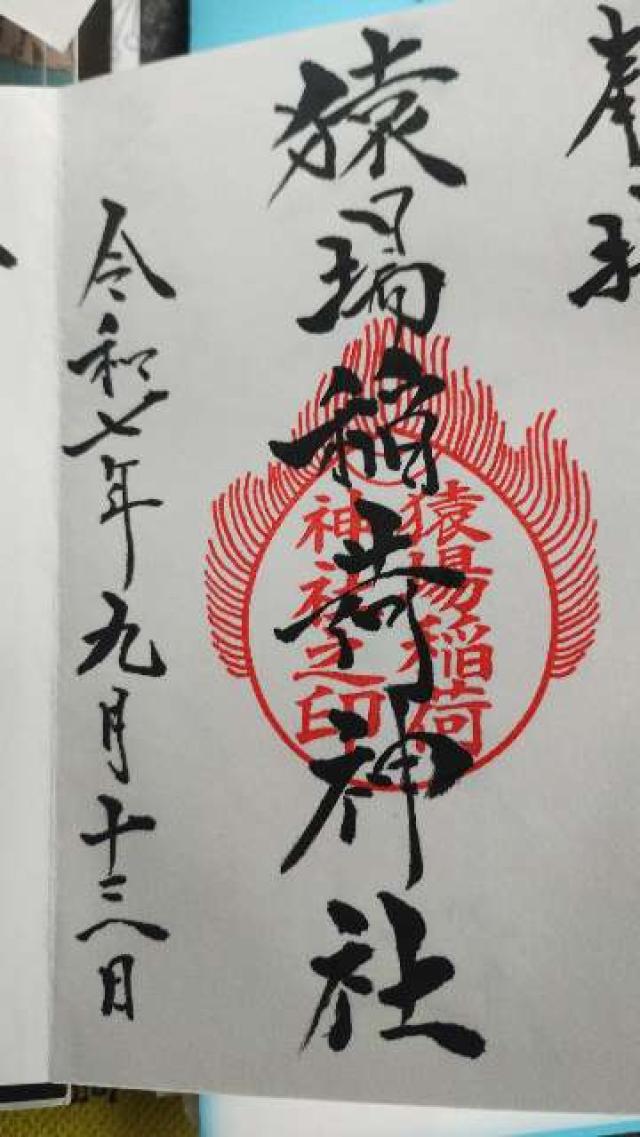 奉拝
猿場稲荷神社
猿場稲荷
神社之印
令和七年九月十三日